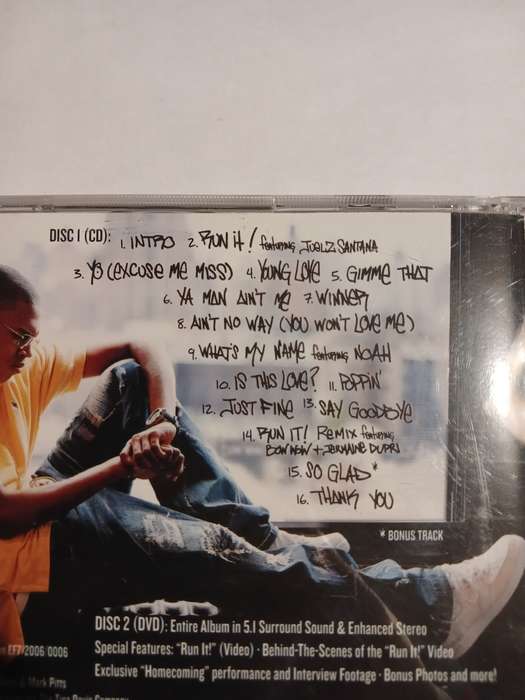 DISC 1 (CD): 1. INTRO 2. RUN IT! featuring JUELZ SANTANA
3. YO (EXCUSE ME MISS) 4. YOUNG LOVE 5. GIMME THAT
6. YA MAN AIN'T ME 7. WINNER
8. AIN'T NO WAY (YOU WON'T LOVE ME)
9. WHAT'S MY NAME featuring NOAH
10. IS THIS LOVE? 11. POPPIN'
12. JUST FINE 13. SAY GOODBYE
14. RUN IT! REMIX featuring
BOW WOW + JERMAINE DUPRI
15. SO GLAD*
16. THANK YOU
* BONUS TRACK
DISC 2 (DVD): Entire Album in 5.1 Surround Sound & Enhanced Stereo
Special Features: "Run It!" (Video) · Behind-The-Scenes of the "Run It!" Video
Exclusive "Homecoming" performance and Interview Footage · Bonus Photos and more!
2006 0006
& Mark Pitts
Company